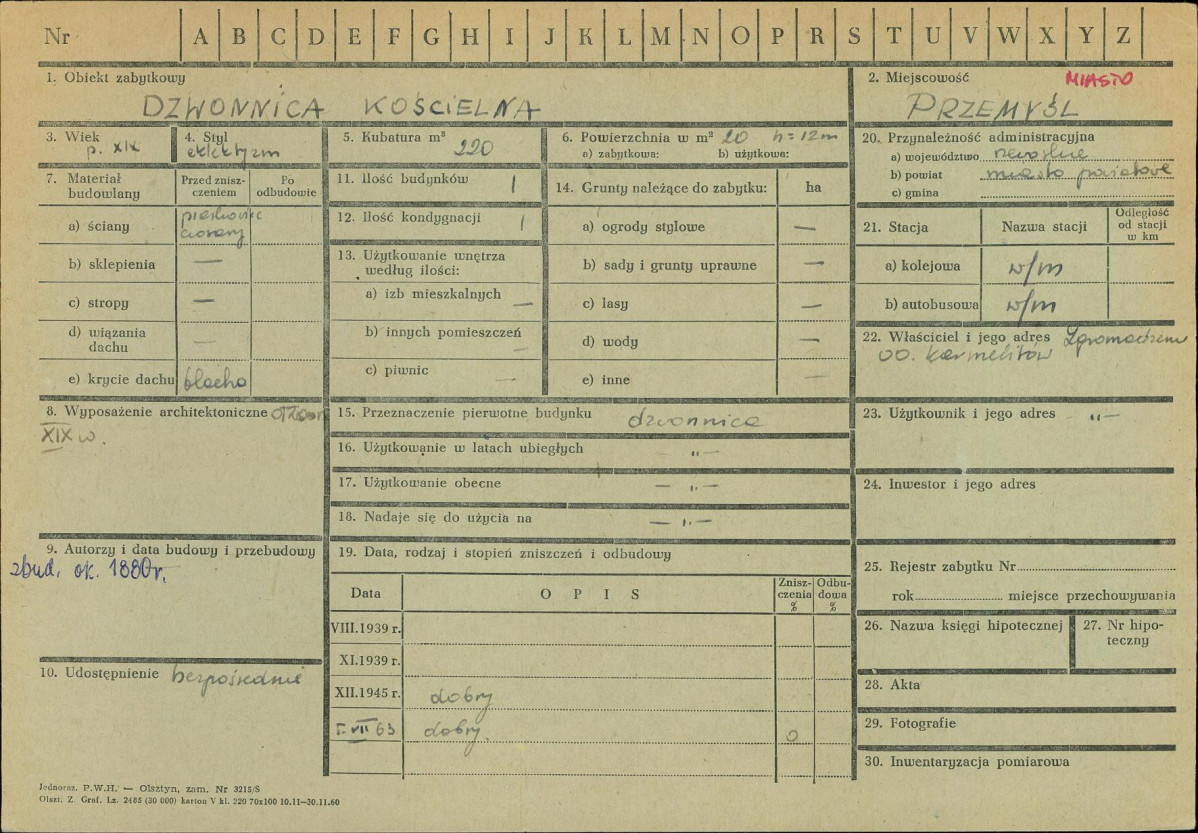 Nr A B C D E F G H I J K L M N O P R S T U V W X Y Z
1. Obiekt zabytkowy
DZWONNICA KOŚCIELNA
2. Miejscowość MIASTO
PRZEMYŚL
3. Wiek
p. XIX
4. Styl
eklektyzm
5. Kubatura m³
220
6. Powierzchnia w m² 20 h=12m
a) zabytkowa: b) użytkowa:
20. Przynależność administracyjna
a) województwo rzeszowskie
b) powiat miasto powiatowe
c) gmina
7. Materiał budowlany
Przed zniszczeniem
Po odbudowie
a) ściany
piaskowiec
ciosany
b) sklepienia —
c) stropy —
d) wiązania dachu —
e) krycie dachu blacha
11. Ilość budynków 1
12. Ilość kondygnacji 1
13. Użytkowanie wnętrza
według ilości:
a) izb mieszkalnych —
b) innych pomieszczeń —
c) piwnic —
14. Grunty należące do zabytku: ha
a) ogrody stylowe —
b) sady i grunty uprawne —
c) lasy —
d) wody —
e) inne —
21. Stacja Nazwa stacji Odległość od stacji w km
a) kolejowa w/m
b) autobusowa w/m
22. Właściciel i jego adres Zgromadzenie
OO. Karmelitów
8. Wyposażenie architektoniczne
XIX w.
15. Przeznaczenie pierwotne budynku dzwonnica
16. Użytkowanie w latach ubiegłych „—
17. Użytkowanie obecne — „ —
18. Nadaje się do użycia na — „ —
23. Użytkownik i jego adres — „ —
24. Inwestor i jego adres
9. Autorzy i data budowy i przebudowy
zbud. ok. 1880 r.
19. Data, rodzaj i stopień zniszczeń i odbudowy
Data OPIS Zniszczenia % Odbudowa %
VIII.1939 r.
XI.1939 r.
XII.1945 r. dobry
VII 63 dobry. 0
25. Rejestr zabytku Nr
rok miejsce przechowywania
26. Nazwa księgi hipotecznej
27. Nr hipoteczny
10. Udostępnienie bezpośrednie
28. Akta
29. Fotografie
30. Inwentaryzacja pomiarowa
Jednoraz. P.W.H. — Olsztyn, zam. Nr 3215/S
Olszt. Z. Graf. Lz. 2485 (30 000) karton V kl. 220 70x100 10.11—30.11.60